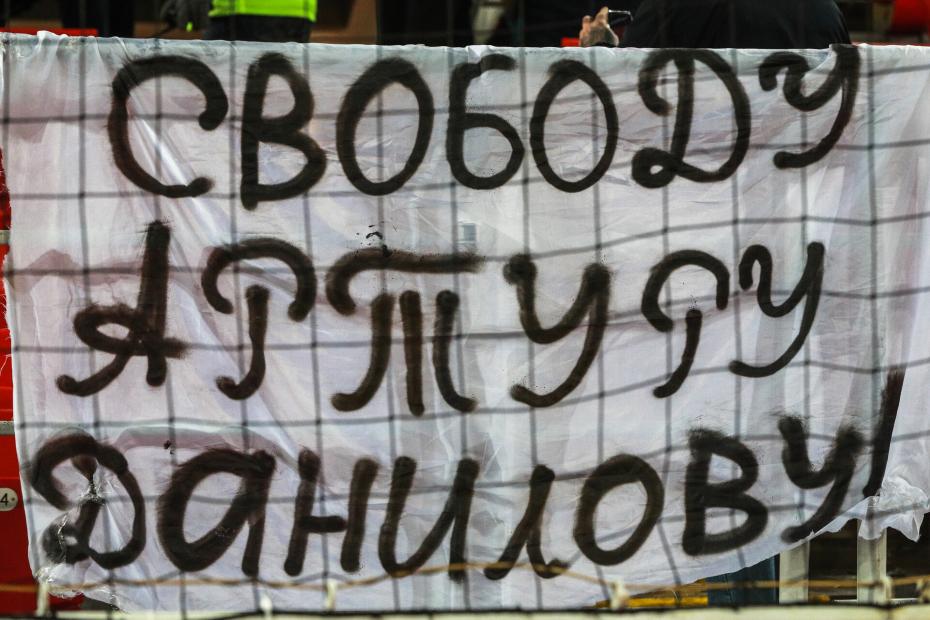 СВОБОДУ
АРТУРУ
ДАНИЛОВУ!
4